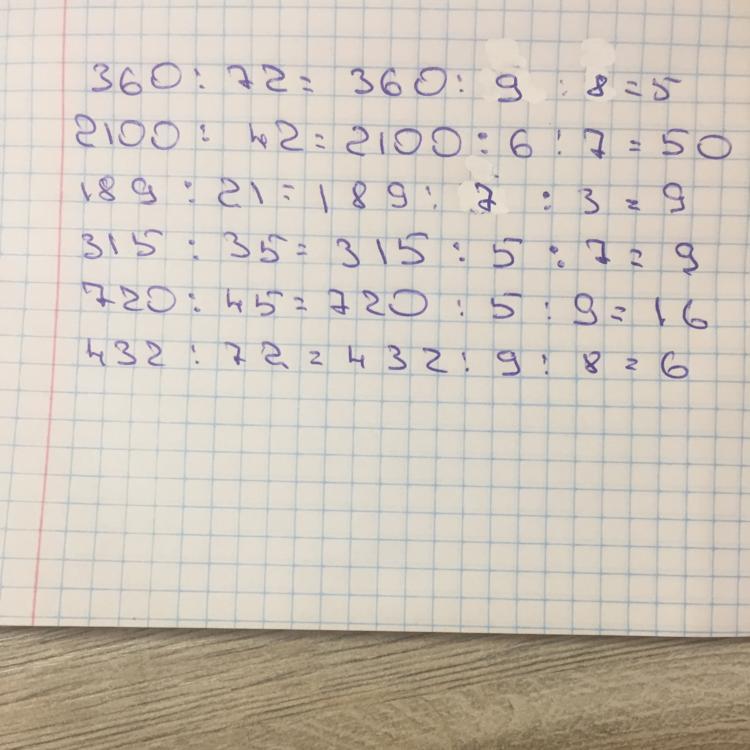 360 : 72 = 360 : 9 : 8 = 5
2100 : 42 = 2100 : 6 : 7 = 50
189 : 21 = 189 : 7 : 3 = 9
315 : 35 = 315 : 5 : 7 = 9
720 : 45 = 720 : 5 : 9 = 16
432 : 72 = 432 : 9 : 8 = 6